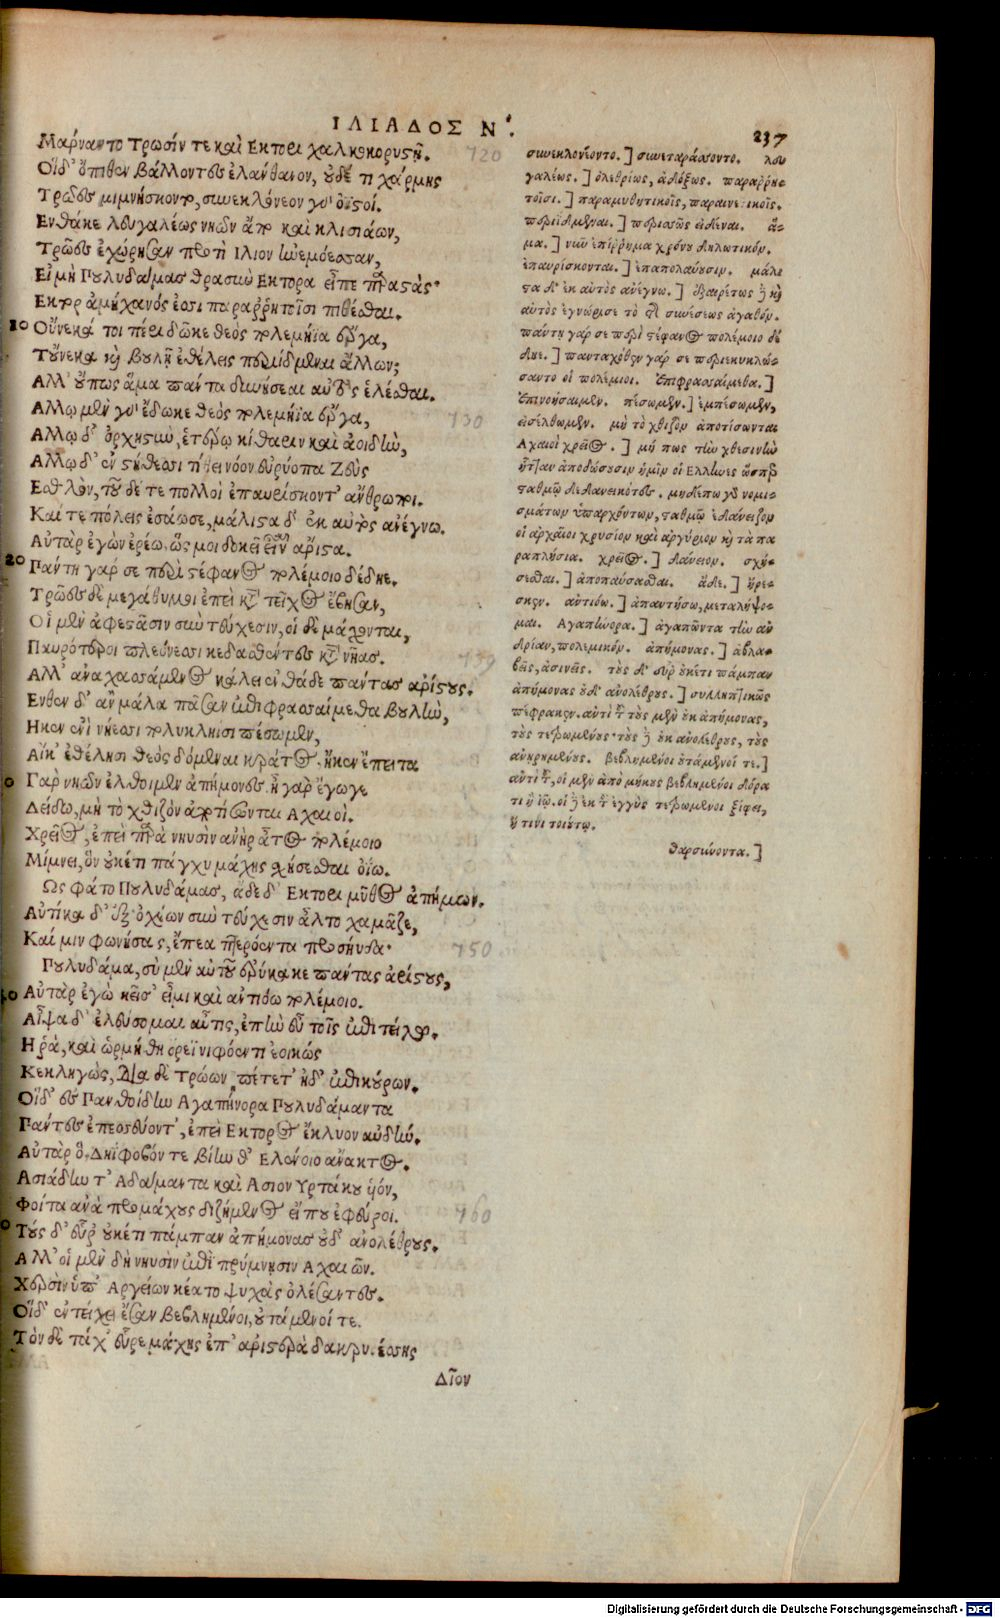 ΙΛΙΑΔΟΣ Ν΄.
237
Μάρναντο Τρωσίν τε καὶ Εκτορι χαλκοκορυστῇ.
720
Οἵδ᾽ ὄπιθεν βάλλοντες ἐλάνθανον, οὐδέ τι χάρμης
Τρῶες μιμνήσκοντο, συνεκλόνεον γὰρ ὀϊστοί.
Ενθά κε λευγαλέως νηῶν ἄπο καὶ κλισιάων,
Τρῶες ἐχώρησαν προτὶ Ιλιον ἠνεμόεσσαν,
Εἰ μὴ Πουλυδάμας θρασὺν Εκτορα εἶπε παραστάς·
Εκτορ ἀμήχανός ἐσσι παραῤῥητοῖσι πιθέσθαι.
10
Οὕνεκά τοι πέρι δῶκε θεὸς πολεμήϊα ἔργα,
Τοὔνεκα καὶ βουλῇ ἐθέλεις περιίδμεναι ἄλλων;
Αλλ᾽ οὔπως ἅμα πάντα δυνήσεαι αὐτὸς ἑλέσθαι.
Αλλῳ μὲν γὰρ ἔδωκε θεὸς πολεμήϊα ἔργα,
730
Αλλῳ δ᾽ ὀρχηστὺν, ἑτέρῳ κίθαριν καὶ ἀοιδὴν,
Αλλῳ δ᾽ ἐν στήθεσσι τίθει νόον εὐρύοπα Ζεὺς
Εσθλὸν, τοῦ δέ τε πολλοὶ ἐπαυρίσκοντ᾽ ἄνθρωποι.
Καί τε πόλεις ἐσάωσε, μάλιστα δ᾽ ἐκ αὐτὸς ἀνέγνω.
Αὐτὰρ ἐγὼν ἐρέω, ὥς μοι δοκεῖ εἶναι ἄριστα.
20
Πάντη γάρ σε περὶ στέφανος πολέμοιο δέδηε.
Τρῶες δὲ μεγάθυμοι ἐπεὶ κατὰ τεῖχος ἔβησαν,
Οἱ μὲν ἀφεστᾶσιν σὺν τεύχεσιν, οἱ δὲ μάχονται,
Παυρότεροι πλεόνεσσι κεδασθέντες κατὰ νῆας.
739
Αλλ᾽ ἀναχασσάμενος κάλει ἐνθάδε πάντας ἀρίστους.
Ενθεν δ᾽ ἂν μάλα πᾶσαν ἐπιφρασσαίμεθα βουλὴν,
Ηκεν ἐνὶ νήεσσι πολυκλήϊσι πέσωμεν,
Αἴκ᾽ ἐθέλησι θεὸς δόμεναι κράτος. ἤκεν ἔπειτα
0
Παρ νηῶν ἔλθοιμεν ἀπήμονες. ἦ γὰρ ἔγωγε
Δείδω, μὴ τὸ χθιζὸν ἀποτίσωνται Αχαιοὶ.
Χρεῖος, ἐπεὶ παρὰ νηυσὶν ἀνὴρ ἆτος πολέμοιο
Μίμνει, ὃν οὐκέτι πάγχυ μάχης σχήσεσθαι ὀΐω.
Ως φάτο Πουλυδάμας, ἅδε δ᾽ Εκτορι μῦθος ἀπήμων.
Αὐτίκα δ᾽ ἐξ ὀχέων σὺν τεύχεσιν ἆλτο χαμᾶζε,
Καί μιν φωνήσας, ἔπεα πτερόεντα προσηύδα·
750
Πουλυδάμα, σὺ μὲν αὐτοῦ ἐρύκακε πάντας ἀρίστους,
40
Αὐτὰρ ἐγὼ κεῖσ᾽ εἶμι καὶ ἀντιόω πολέμοιο.
Αἶψα δ᾽ ἐλεύσομαι αὖτις, ἐπὴν εὖ τοῖς ἐπιτείλω.
Η ῥὰ, καὶ ὡρμήθη ὄρεϊ νιφόεντι ἐοικώς
Κεκληγὼς, διὰ δὲ Τρώων πέτετ᾽ ἠδ᾽ ἐπικούρων.
Οἵδ᾽ ἐς Πανθοΐδην Αγαπήνορα Πουλυδάμαντα
Πάντες ἐπεσσεύοντ᾽, ἐπεὶ Εκτορος ἔκλυον αὐδὴν.
Αὐτὰρ ὃ, Δηΐφοβόν τε βίην θ᾽ Ελένοιο ἄνακτος.
Ασιάδην τ᾽ Αδάμαντα καὶ Ασιον Υρτάκου υἱόν,
Φοίτα ἀνὰ προμάχους διζήμενος εἴπου ἐφεύροι.
760
0
Τούς δ᾽ εὗρ᾽ οὐκέτι πάμπαν ἀπήμονας οὐδ᾽ ἀνολέθρους.
Αλλ᾽ οἱ μὲν δὴ νηυσὶν ἐπὶ πρύμνησιν Αχαιῶν.
Χερσὶν ὑπ᾽ Αργείων κέατο ψυχὰς ὀλέσαντες.
Οἵδ᾽ ἐν τείχει ἔσαν βεβλημένοι, οὐτάμενοί τε.
Τὸν δὲ τάχ᾽ εὗρε μάχης ἐπ᾽ ἀριστερὰ δακρυοέσσης
Δῖον
συνεκλονέοντο.] συνεταράσσοντο. λευ
γαλέως.] ὀλεθρίως, ἀδόξως. παραῤῥη-
τοῖσι.] παραμυθητικοῖς, παραινετικοῖς.
περιΐδμεναι.] περισσῶς εἰδέναι. ἅ-
μα.] νῦν ἐπίῤῥημα χρόνου δηλωτικόν.
ἐπαυρίσκονται.] ἐπαπολαύουσιν. μάλι
στα δ᾽ ἐκ αὐτὸς ἀνέγνω.] ἐξαιρέτως δὲ καὶ
αὐτὸς ἐγνώρισε τὸ τῆς συνέσεως ἀγαθόν.
πάντη γάρ σε περὶ στέφανος πολέμοιο δέ
δηε.] πανταχόθεν γάρ σε περιεκυκλώ-
σαντο οἱ πολέμιοι. ἐπιφρασσαίμεθα.]
ἐπινοήσαιμεν. πέσωμεν.] ἐμπέσωμεν,
εἰσέλθωμεν. μὴ τὸ χθιζὸν ἀποτίσωνται
Αχαιοὶ χρεῖος.] μή πως τὴν χθεσινὴν
ἧτταν ἀποδώσουσιν ἡμῖν οἱ Ελληνες ὥσπερ
σταθμῷ δεδανεικότες. μηδέπω γὰρ νομι-
σμάτων ὑπαρχόντων, σταθμῷ ἐδάνειζον
οἱ ἀρχαῖοι χρυσίον καὶ ἀργύριον καὶ τὰ πα
ραπλήσια. χρεῖος.] δάνειον. σχή-
σεσθαι.] ἀποπαύσασθαι. ἅδε.] ἤρε-
σκεν. ἀντιόω.] ἀπαντήσω, μεταλήψο-
μαι. Αγαπήνορα.] ἀγαπῶντα τὴν ἀν
δρίαν, πολεμικόν. ἀπήμονας.] ἀβλα-
βεῖς, ἀσινεῖς. τοὺς δ᾽ εὗρ οὐκέτι πάμπαν
ἀπήμονας οὐδ᾽ ἀνολέθρους.] συλληπτικῶς
πέφρακεν. ἀντὶ τοῦ τοὺς μὲν οὐκ ἀπήμονας,
τοὺς τετρωμένους· τοὺς δὲ οὐκ ἀνολέθρους, τοὺς
ἀνῃρημένους. βεβλημένοι οὐτάμενοί τε.]
ἀντὶ τοῦ, οἱ μὲν ἀπὸ μήκους βεβλημένοι δόρα
τι ἢ ἰῷ. οἱ δὲ ἐκ τοῦ ἐγγὺς τετρωμένοι ξίφει,
ἤ τινι τοιούτῳ.
θαρσύνοντα.]
Digitalisierung gefördert durch die Deutsche Forschungsgemeinschaft - DFG